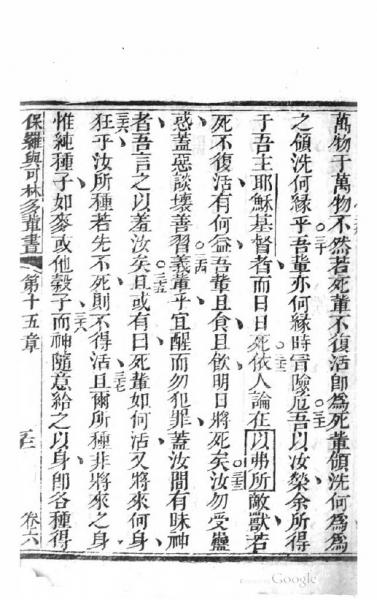 萬物于萬物不然若死輩不復活卽爲死輩領洗何爲爲
之領洗何緣乎吾輩亦何緣時冒險危吾以汝榮余所得
于吾主耶穌基督者而日日死依人論在以弗所敵獸若
死不復活有何益吾輩且食且飲明日將死矣汝勿受蠱
惑蓋惡談壞善習義輩乎宜醒而勿犯罪蓋汝間有昧神
者吾言之以羞汝矣且或有曰死輩如何活又將來何身
狂乎汝所種若先不死則不得活且爾所種非將來之身
惟純種子如麥或他穀子而神隨意給之以身卽各種得
保羅與可林多輩書 第十五章 卷六
Google